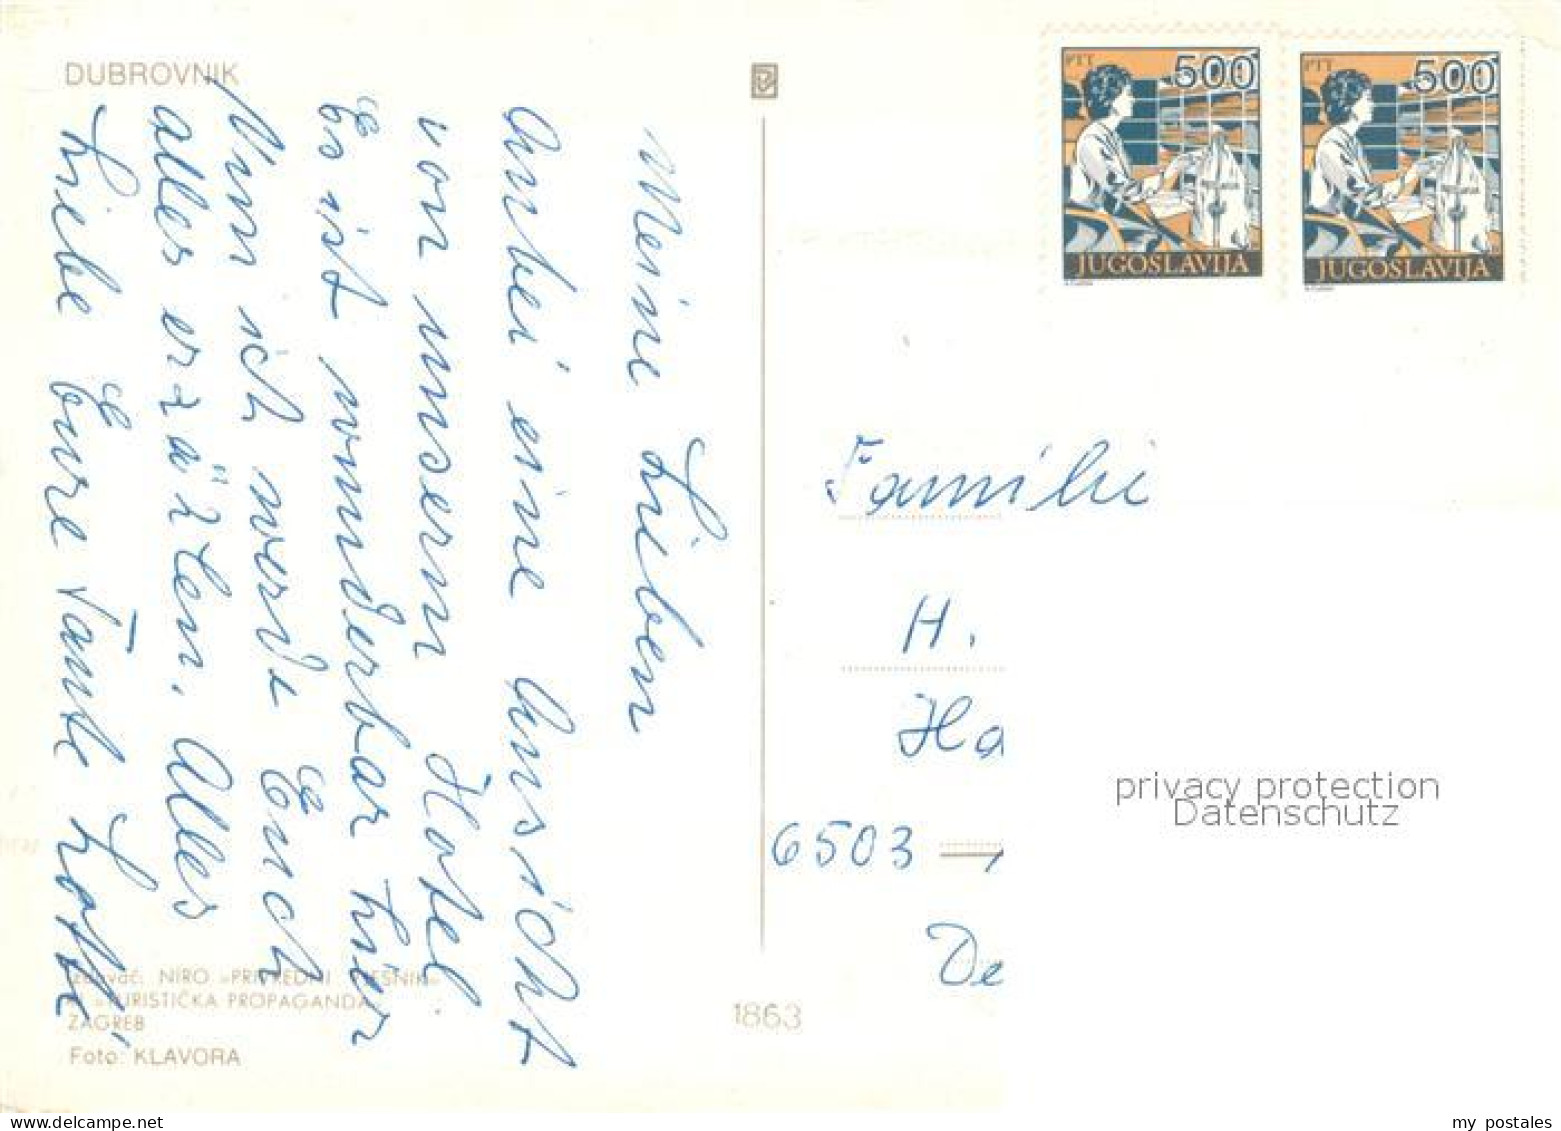 DUBROVNIK
Meine Lieben
Anbei eine Ansicht
von unserm Hotel
Es ist wunderbar hier
Nun ich werde Euch
alles erzählen. Alles
Liebe Eure Tante Lotte
NIRO »PRIVREDNI VJESNIK«
TURISTIČKA PROPAGANDA
ZAGREB
Foto: KLAVORA
1863
PTT 500
JUGOSLAVIJA
PTT 500
JUGOSLAVIJA
Familie
H.
Ha
6503
De
privacy protection
Datenschutz
my postales